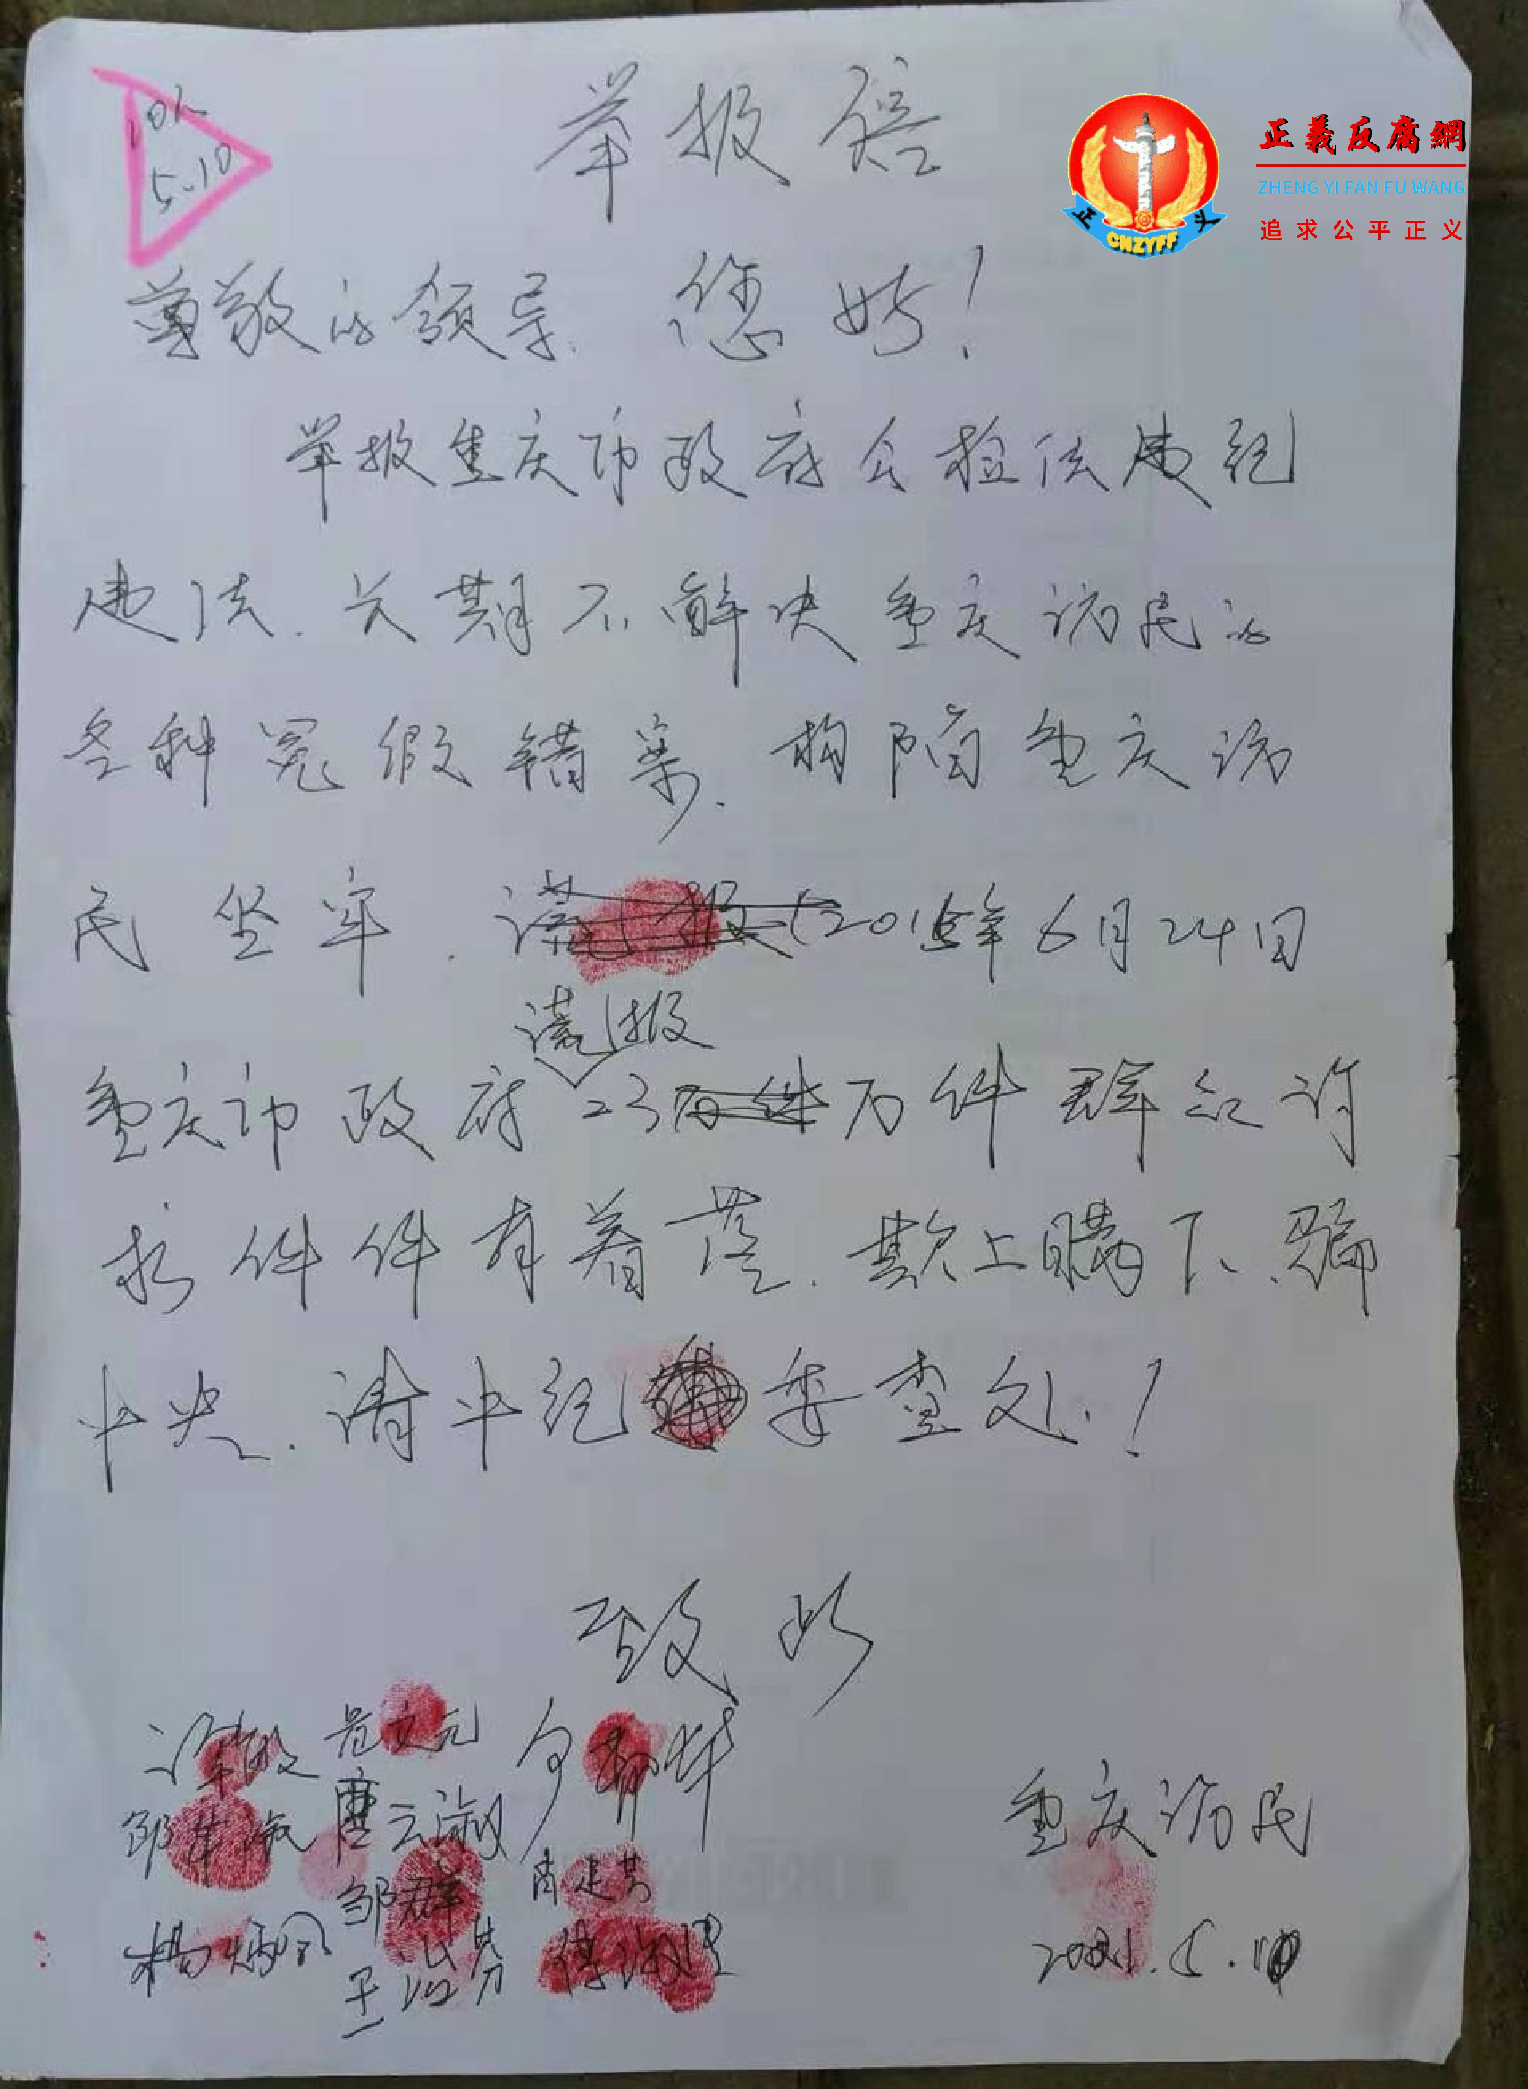 举报信
正義反腐網
ZHENG YI FAN FU WANG
追求公平正义
正 义
CNZYFF
5.10
尊敬的领导.您好!
举报重庆市政府公检法违纪
违法.长期不解决重庆访民的
各种冤假错案.构陷重庆访
民坐牢.2015年6月24日
谎报
重庆市政府23万件群众诉
求件件有着落.欺上瞒下、骗
中央.请中纪委查处!
致此
唐云淑
邹群
杨炳凤
重庆访民
2021.5.10